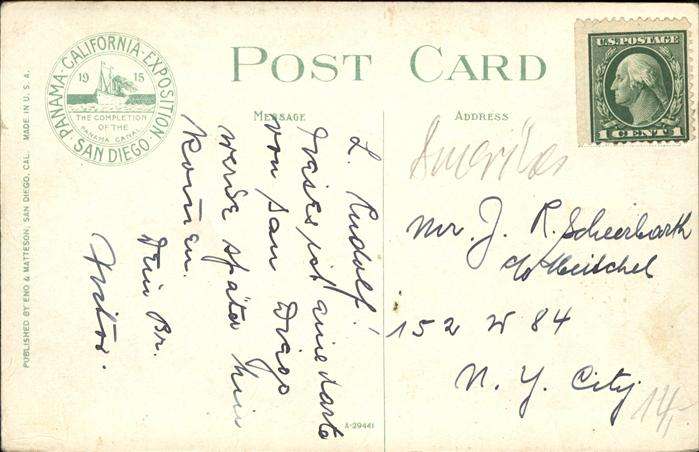 PANAMA-CALIFORNIA-EXPOSITION
1915
THE COMPLETION
OF THE
PANAMA CANAL
SAN DIEGO
POST CARD
U.S. POSTAGE
1 CENT 1
MESSAGE
ADDRESS
PUBLISHED BY ENO & MATTESON, SAN DIEGO, CAL. MADE IN U.S.A.
L. Rudolf!
Dieses ist eine Karte
von San Diego
werde später hin
kommen.
Dein Br.
Amerika
Mr. J. R. Scheerbarth
c/o Heitschel
152 W 84
N. Y. City
A-29441
14,-